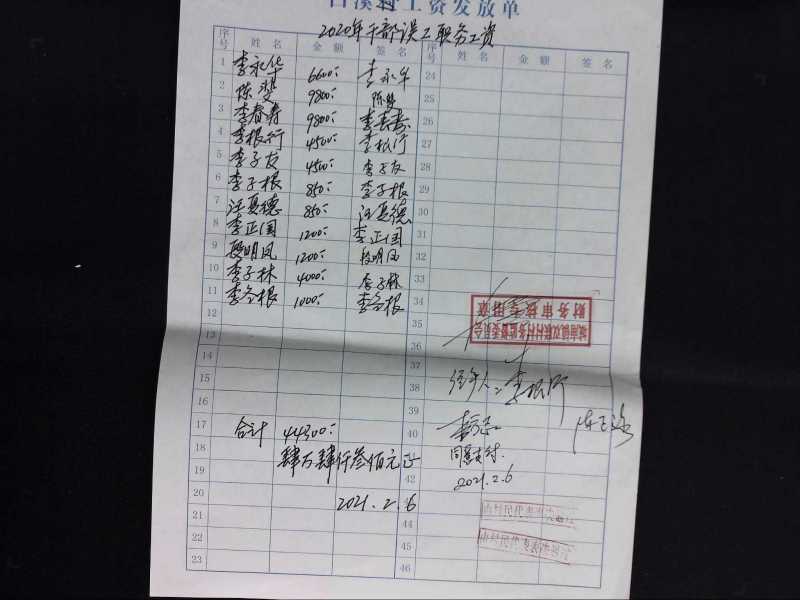 白溪村工资发放单
2020年干部误工职务工资
序号 姓名 金额 签名 序号 姓名 金额 签名
1 李永华 6600 李永华 24
2 陈 9800 陈 25
3 李春寿 9800 李春寿 26
4 李根行 4500 李根行 27
5 李子友 4500 李子友 28
6 李子根 850 李子根 29
7 汪夏德 850 汪夏德 30
8 李正国 1200 李正国 31
9 段明凤 1200 段明凤 32
10 李子林 4000 李子林 33
11 李冬根 1000 李冬根 34
财务审核专用章
城南镇双联村村务监督委员会
35
13
37
14 经手人: 李根行
15 38
16 39
17 合计 44300 40
18 肆万肆仟叁佰元正 同意支付.
19 42
2021.2.6
20 2021.2.6
21 44
22
23 46